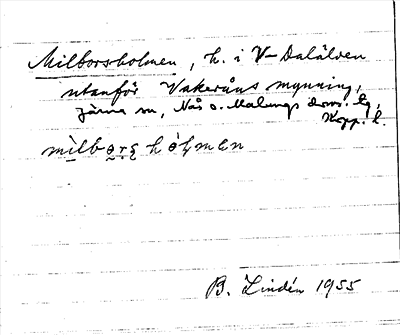 Milborsholmen, h. i V-Dalälven
utanför Vakeråns mynning,
Järna sn, Nås o. Malungs doms. lg,
Kopp. l.
milbo̤rs̤hólmen
B. Lindén 1955